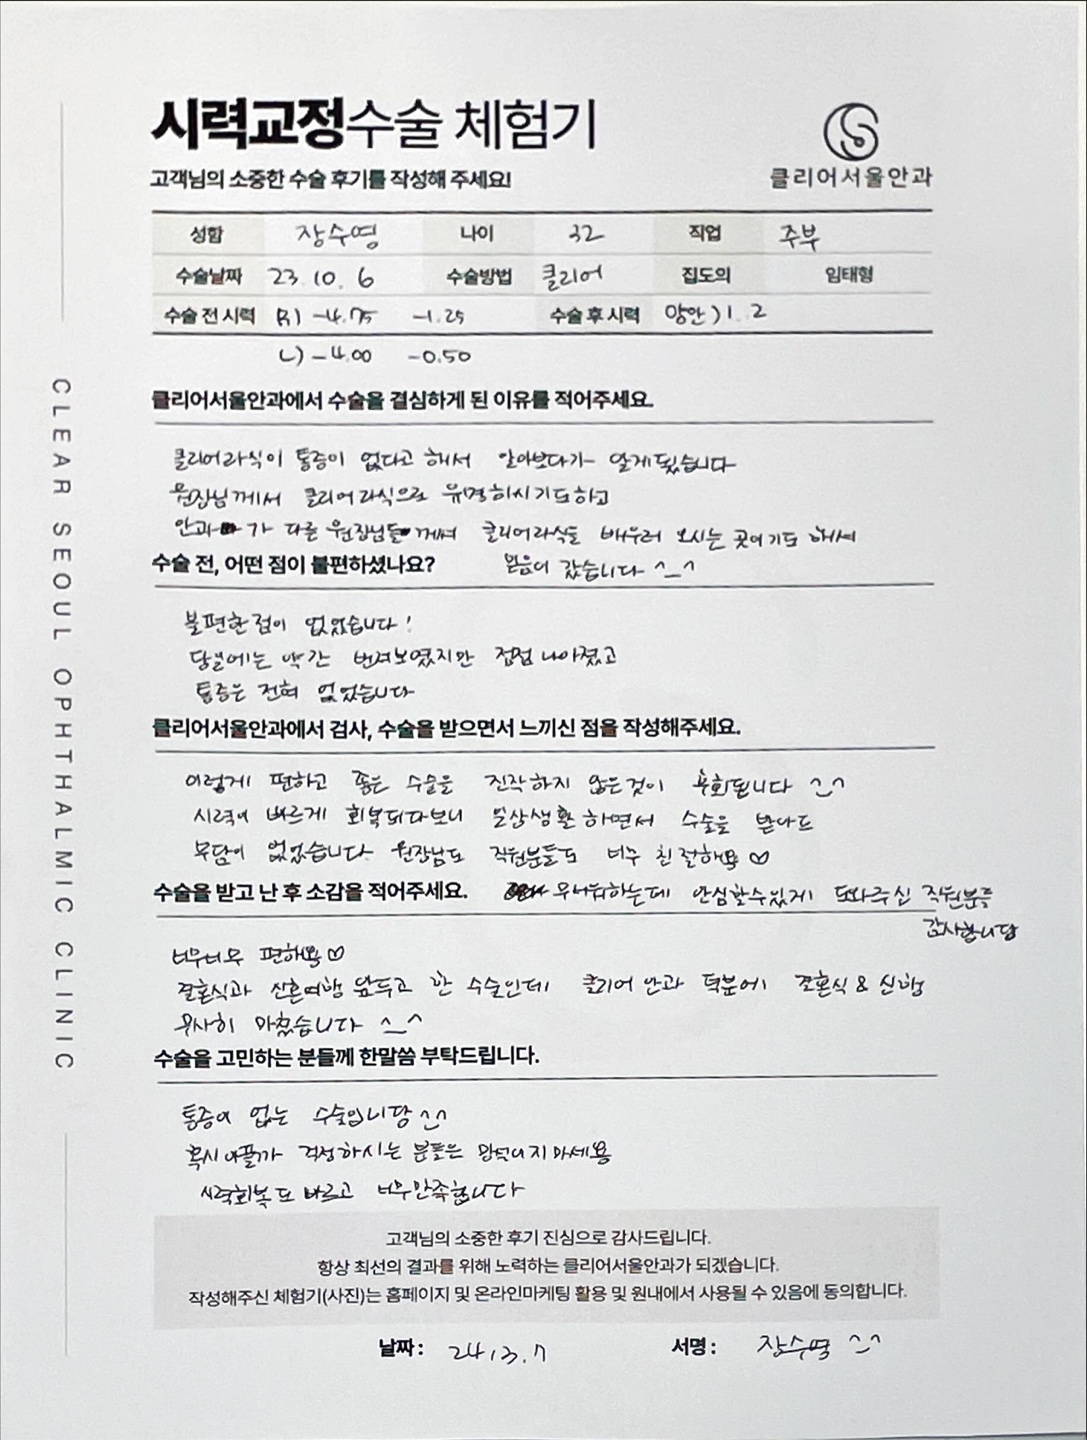 시력교정수술 체험기
고객님의 소중한 수술 후기를 작성해 주세요!
클리어서울안과
성함 장수영 나이 32 직업 주부
수술날짜 23. 10. 6 수술방법 클리어 집도의 임태형
수술 전 시력 R) -4.75 -1.25 수술 후 시력 양안) 1.2
L) -4.00 -0.50
클리어서울안과에서 수술을 결심하게 된 이유를 적어주세요.
클리어라식이 통증이 없다고 해서 알아보다가 알게됬습니다
원장님께서 클리어라식으로 유명하시기도하고
안과 가 다른 원장님들 께서 클리어라식을 배우러 오시는 곳이기도 해서
믿음이 갔습니다 ^_^
수술 전, 어떤 점이 불편하셨나요?
불편한점이 없었습니다!
당일에는 약간 번져보였지만 점점 나아졌고
통증은 전혀 없었습니다
클리어서울안과에서 검사, 수술을 받으면서 느끼신 점을 작성해주세요.
이렇게 편하고 좋은 수술을 진작하지 않은것이 후회됩니다 ^_^
시력이 빠르게 회복되다보니 일상생활 하면서 수술을 받아도
부담이 없었습니다 원장님도 직원분들도 너무 친절해용 ♡
무서워하는데 안심할수있게 도와주신 직원분들
감사합니당
수술을 받고 난 후 소감을 적어주세요.
너무너무 편해용 ♡
결혼식과 신혼여행 앞두고 한 수술인데 클리어 안과 덕분에 결혼식 & 신행
무사히 마쳤습니다 ^_^
수술을 고민하는 분들께 한말씀 부탁드립니다.
통증이 없는 수술입니당 ^^
혹시 아플까 걱정하시는 분들은 망설이지마세용
시력회복도 빠르고 너무만족합니다
고객님의 소중한 후기 진심으로 감사드립니다.
항상 최선의 결과를 위해 노력하는 클리어서울안과가 되겠습니다.
작성해주신 체험기(사진)는 홈페이지 및 온라인마케팅 활용 및 원내에서 사용될 수 있음에 동의합니다.
날짜 : 24.3.7 서명 : 장수영 ^^
CLEAR SEOUL OPHTHALMIC CLINIC